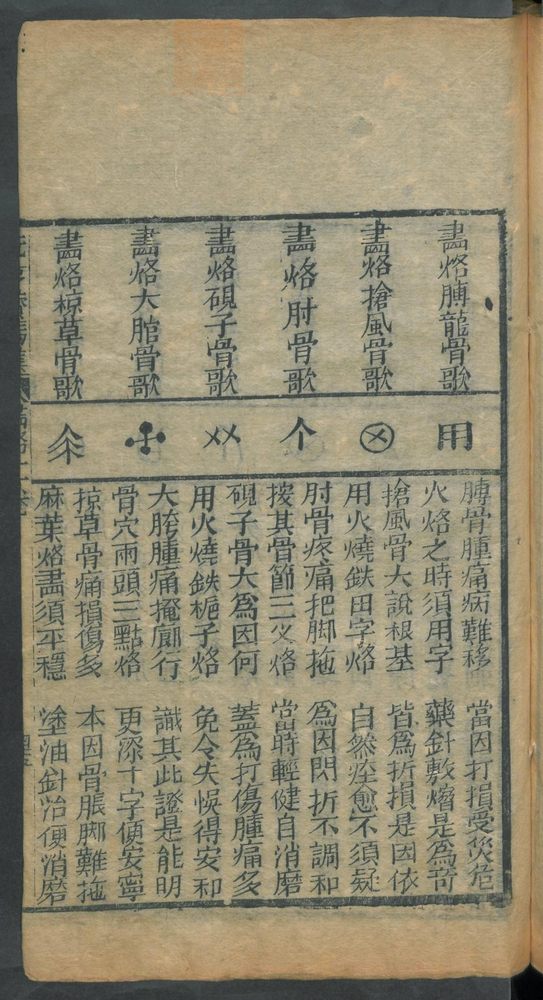 畵烙膊龍骨歌
用
膊骨腫痛病難移 當因打損受災危
火烙之時須用字 藥針敷熁是爲奇
畵烙搶風骨歌
搶風骨大說根基 皆爲折損是因依
用火燒鉄田字烙 自然痊愈不須疑
畵烙肘骨歌
个
肘骨疼痛把脚拖 爲因閃折不調和
按其骨節三叉烙 當時輕健自消磨
畵烙硯子骨歌
硯子骨大爲因何 蓋爲打傷腫痛多
用火燒鉄梔子烙 免令失悞得安和
畵烙大胯骨歌
大胯腫痛掩廁行 識其此證是能明
骨穴兩頭三點烙 更深十字便安寧
畵烙掠草骨歌
掠草骨痛損傷多 本因骨脹脚難拖
麻葉烙畵須平穩 塗油針治便消磨